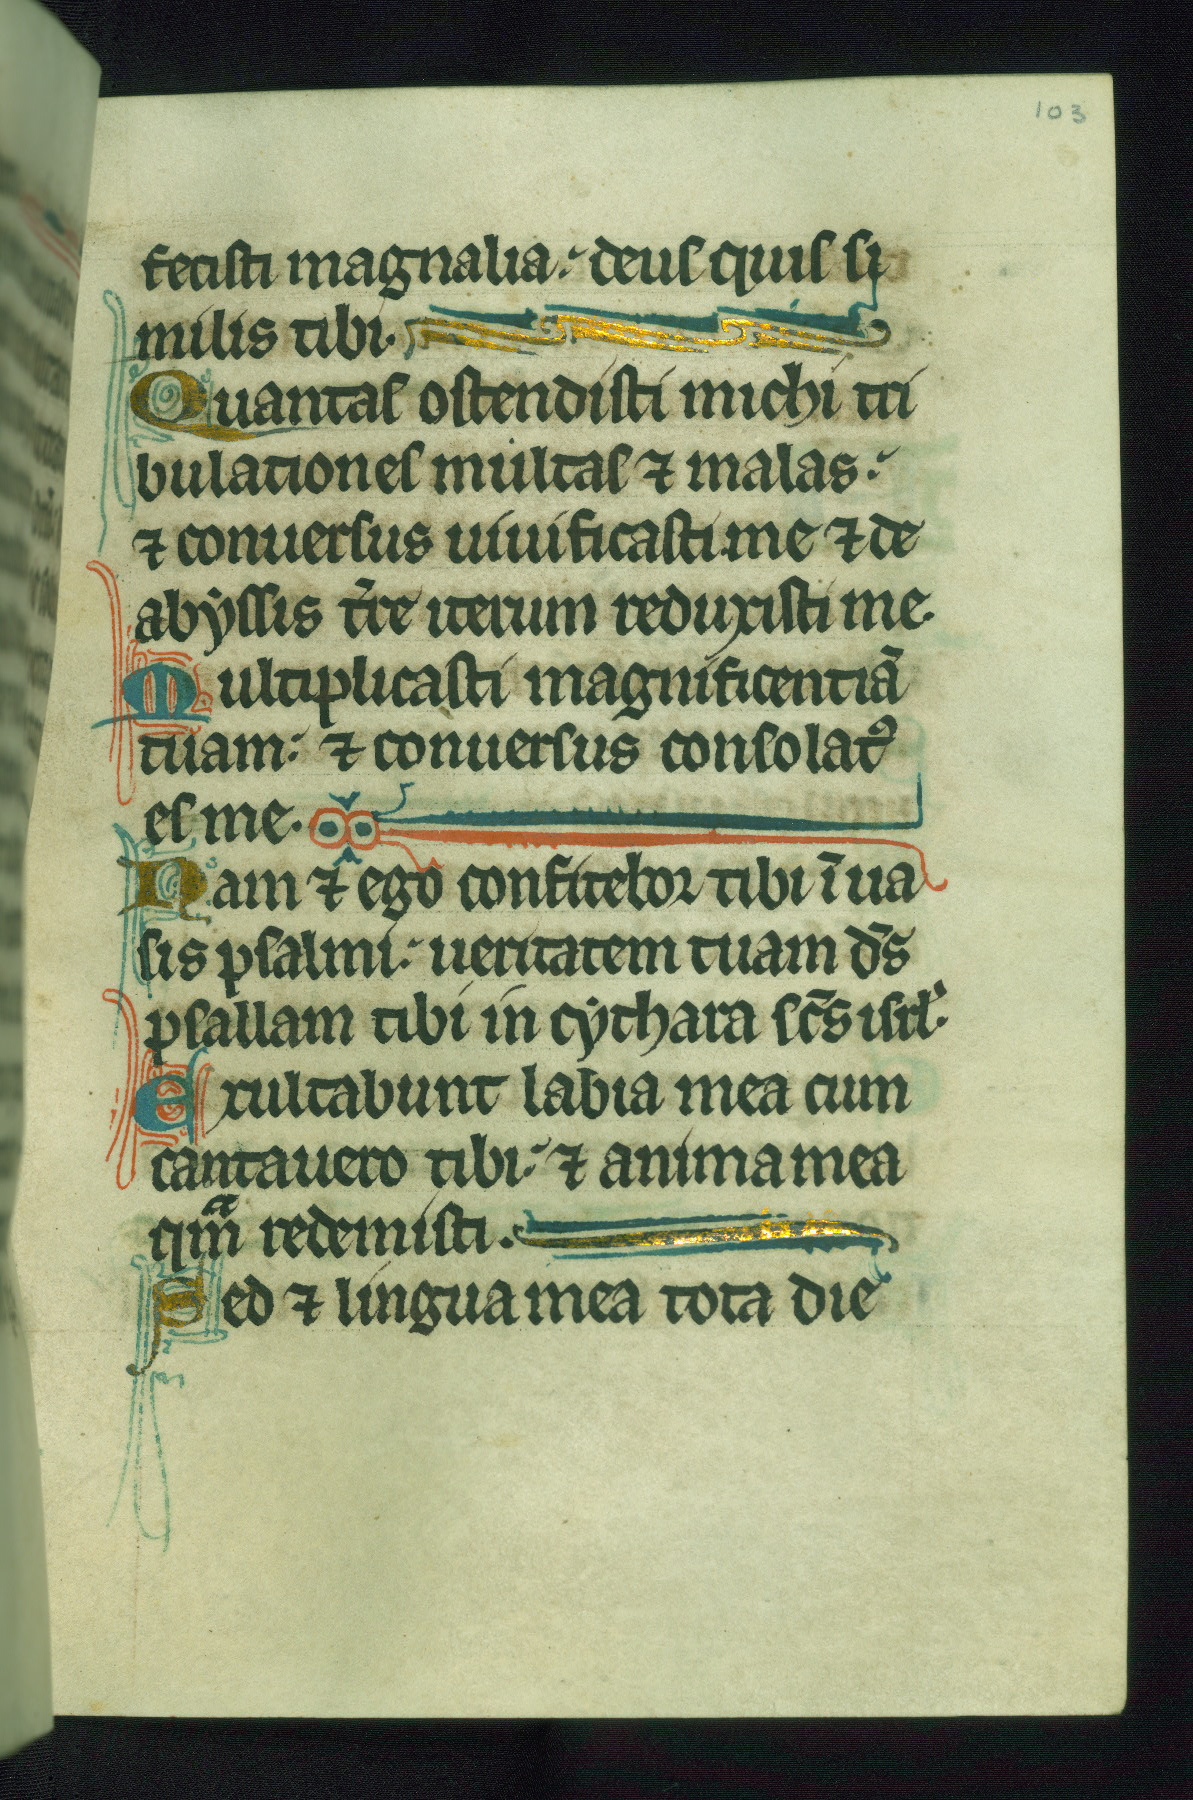 103
fecisti magnalia: deus quis si
milis tibi.
Quantas ostendisti michi tri
bulationes multas ⁊ malas:
⁊ conuersus uiuificasti me ⁊ de
abyssis t̄re iterum reduxisti me.
Multiplicasti magnificentiā
tuam: ⁊ conuersus consolatꝰ
es me.
Nam ⁊ ego confitebor tibi ī ua
sis psalmi: ueritatem tuam ds̄
psallam tibi in cythara sc̄s isrl̓.
Exultabunt labia mea cum
cantauero tibi: ⁊ anima mea
qm̄ redemisti.
Sed ⁊ lingua mea tota die